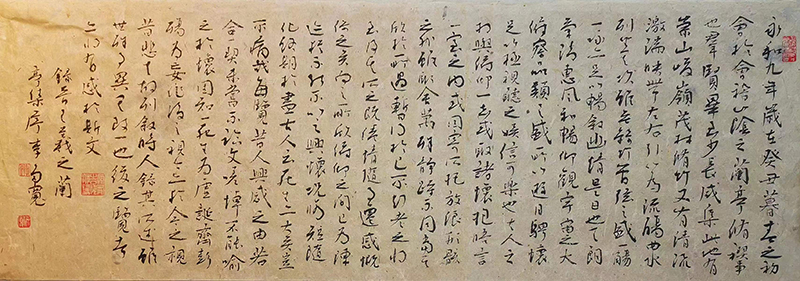 永和九年歲在癸丑暮春之初
會於會稽山陰之蘭亭脩禊事
也羣賢畢至少長咸集此地有
崇山峻嶺茂林脩竹又有清流
激湍映帶左右引以為流觴曲水
列坐其次雖無絲竹管弦之盛一觴
一詠亦足以暢敘幽情是日也天朗
氣清惠風和暢仰觀宇宙之大
俯察品類之盛所以遊目騁懷
足以極視聽之娛信可樂也夫人之
相與俯仰一世或取諸懷抱晤言
一室之內或因寄所托放浪形骸
之外雖趣舍萬殊靜躁不同當其
欣於所遇暫得於己不知老之將
至及其所之既倦情隨事遷感慨
係之矣向之所欣俯仰之間已為陳
迹猶不能不以之興懷況脩短隨
化終期於盡古人云死生亦大矣豈
不痛哉每覽昔人興感之由若
合一契未嘗不臨文嗟悼不能喻
之於懷固知一死生為虛誕齊彭
殤為妄作後之視今亦今之視
昔悲夫故列敘時人錄其所述雖
世殊事異其致一也後之覽者
亦將有感於斯文
錄晉王羲之蘭
亭集序